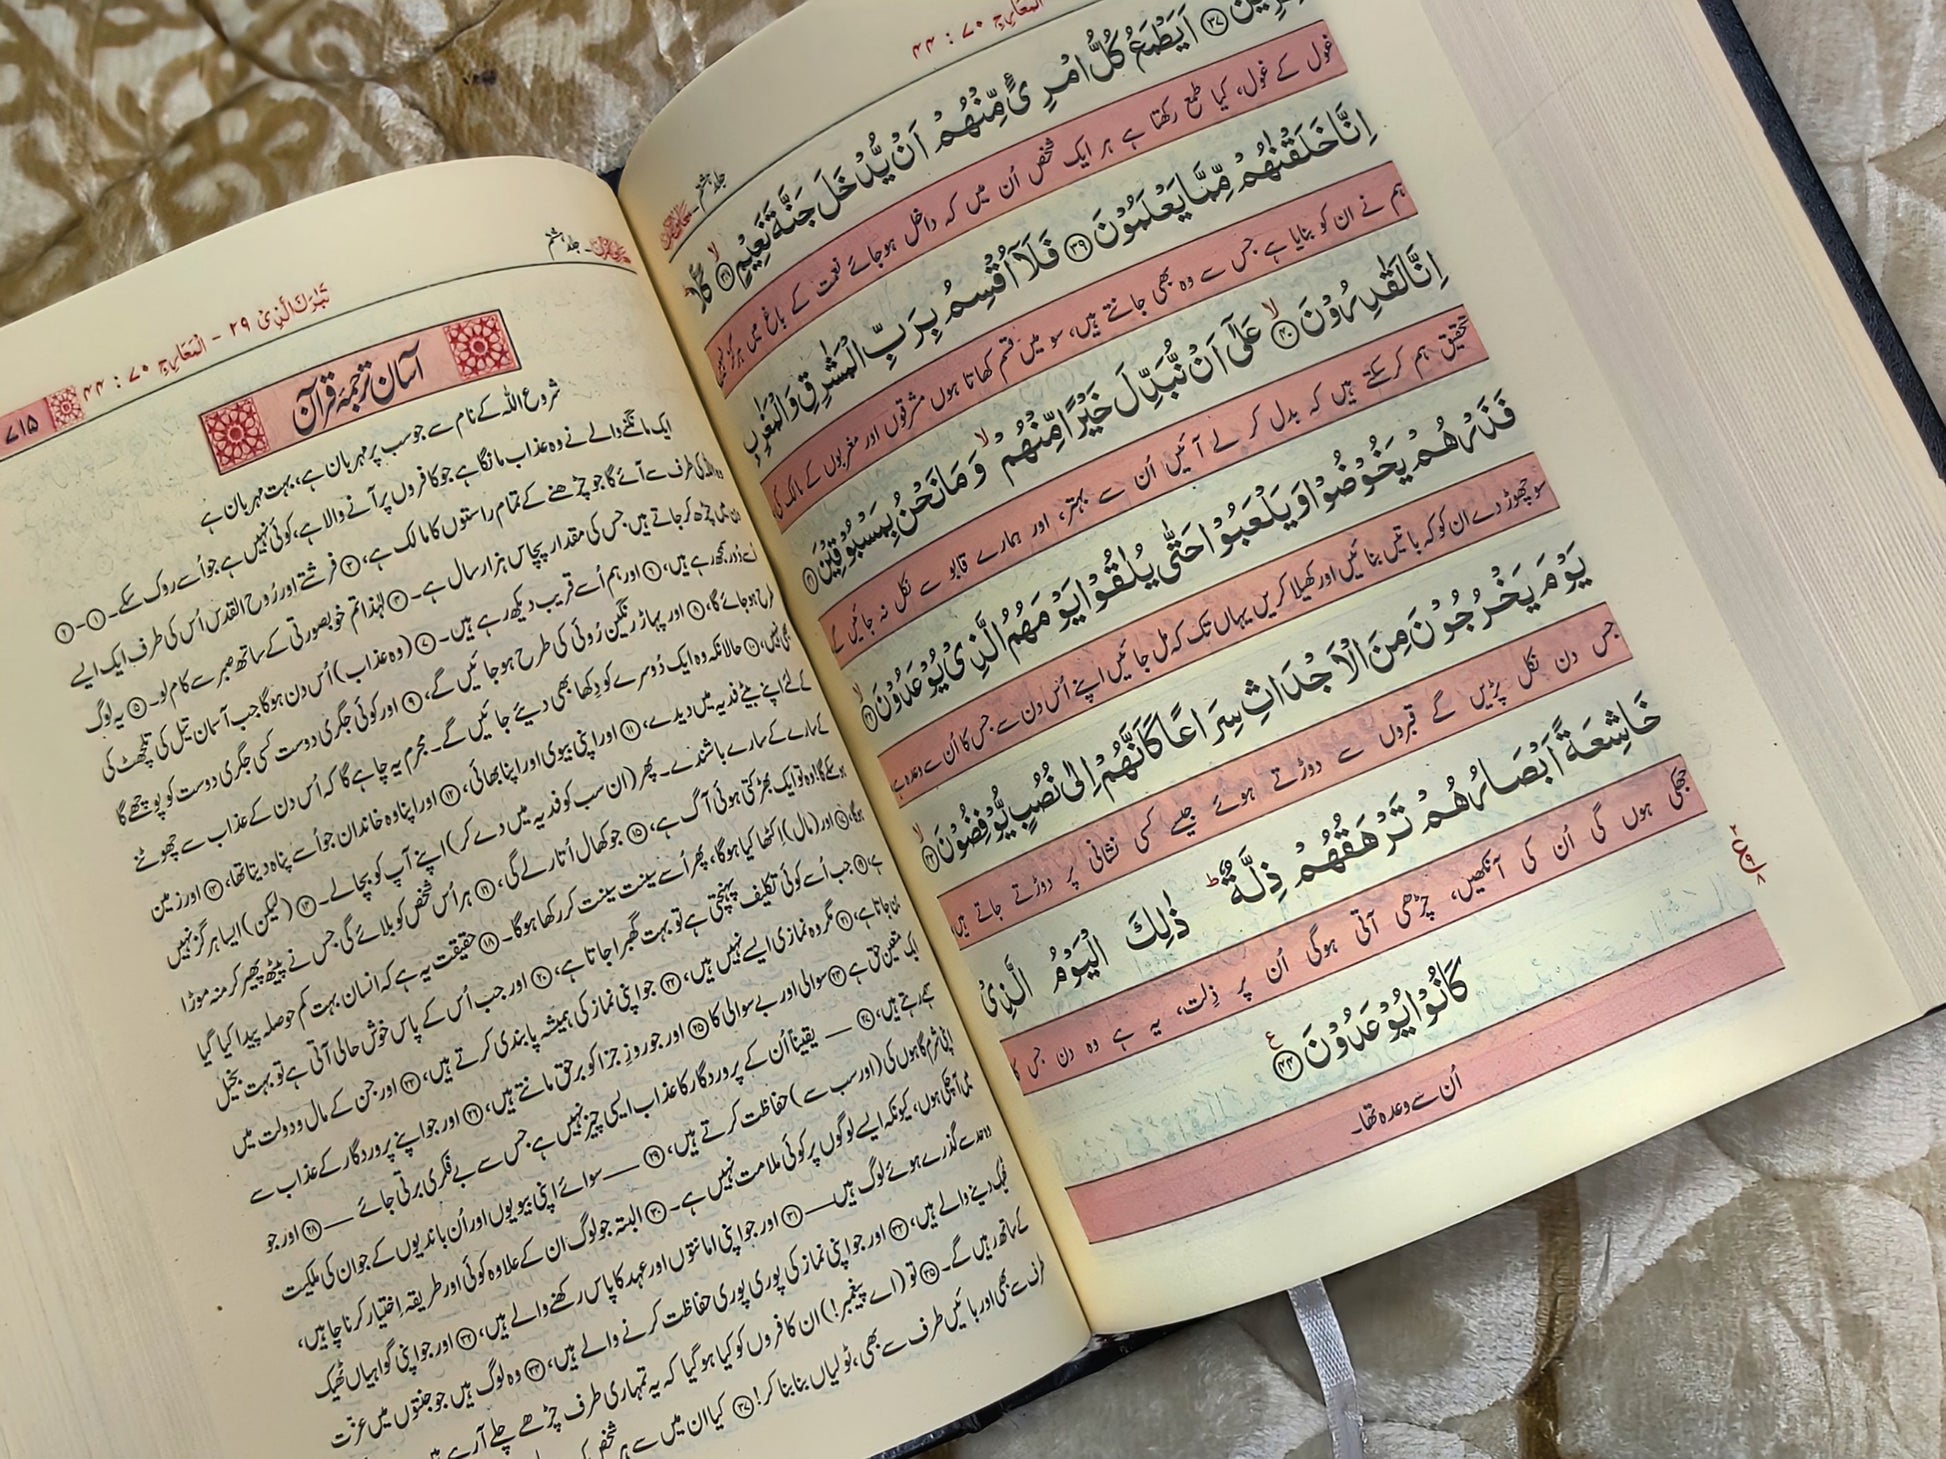 المعارج ۷۰ : ۴۴
جلد ہشتم
اَيَطْمَعُ كُلُّ امْرِئٍ مِّنْهُمْ اَنْ يُّدْخَلَ جَنَّةَ نَعِيْمٍ ۳۸ كَلَّا
غول کے غول، کیا طمع رکھتا ہے ہر ایک شخص اُن میں کہ داخل ہوجائے نعمت کے باغ میں ہرگز نہیں
اِنَّا خَلَقْنٰهُمْ مِّمَّا يَعْلَمُوْنَ ۳۹ فَلَآ اُقْسِمُ بِرَبِّ الْمَشٰرِقِ وَالْمَغٰرِبِ
ہم نے ان کو بنایا ہے جس سے وہ بھی جانتے ہیں، سو میں قسم کھاتا ہوں مشرقوں اور مغربوں کے مالک کی
اِنَّا لَقٰدِرُوْنَ ۴۰ عَلٰٓى اَنْ نُّبَدِّلَ خَيْرًا مِّنْهُمْ وَمَا نَحْنُ بِمَسْبُوْقِيْنَ ۴۱
تحقیق ہم کرسکتے ہیں کہ بدل کر لے آئیں اُن سے بہتر، اور ہمارے قابو سے نکل نہ جائیں گے
فَذَرْهُمْ يَخُوْضُوْا وَيَلْعَبُوْا حَتّٰى يُلٰقُوْا يَوْمَهُمُ الَّذِيْ يُوْعَدُوْنَ ۴۲
سو چھوڑ دے ان کو کہ باتیں بنائیں اور کھیلا کریں یہاں تک کہ مل جائیں اپنے اُس دن سے جس کا اُن سے وعدہ ہے
يَوْمَ يَخْرُجُوْنَ مِنَ الْاَجْدَاثِ سِرَاعًا كَاَنَّهُمْ اِلٰى نُصُبٍ يُّوْفِضُوْنَ ۴۳
جس دن نکل پڑیں گے قبروں سے دوڑتے ہوئے جیسے کسی نشانی پر دوڑتے جاتے ہیں
خَاشِعَةً اَبْصَارُهُمْ تَرْهَقُهُمْ ذِلَّةٌ ؕ ذٰلِكَ الْيَوْمُ الَّذِيْ
جھکی ہوں گی اُن کی آنکھیں، چڑھی آتی ہوگی اُن پر ذِلت، یہ ہے وہ دن جس کا
كَانُوْا يُوْعَدُوْنَ ۴۴
اُن سے وعدہ تھا۔
جلد ہشتم
تَبٰرَكَ الَّذِيْ ۲۹ - المعارج ۷۰ : ۴۴
۷۱۵
آسان ترجمۂ قرآن
شروع اللہ کے نام سے جو سب پر مہربان ہے، بہت مہربان ہے
ایک مانگنے والے نے وہ عذاب مانگا ہے جو کافروں پر آنے والا ہے، کوئی نہیں ہے جو اُسے روک سکے۔ ۱-۲
وہ اللہ کی طرف سے آئے گا جو چڑھنے کے تمام راستوں کا مالک ہے، ۳ فرشتے اور رُوح القدس اُس کی طرف ایک ایسے
دن میں چڑھ کر جاتے ہیں جس کی مقدار پچاس ہزار سال ہے۔ ۴ لہٰذا تم خوبصورتی کے ساتھ صبر سے کام لو۔ ۵ یہ لوگ
اُسے دُور سمجھ رہے ہیں، ۶ اور ہم اُسے قریب دیکھ رہے ہیں۔ ۷ (وہ عذاب) اُس دن ہوگا جب آسمان تیل کی تلچھٹ کی
طرح ہوجائے گا، ۸ اور پہاڑ رنگین رُوئی کی طرح ہوجائیں گے، ۹ اور کوئی جگری دوست کسی جگری دوست کو پوچھے گا
بھی نہیں، ۱۰ حالانکہ وہ ایک دُوسرے کو دِکھا بھی دیئے جائیں گے۔ مجرم یہ چاہے گا کہ اُس دن کے عذاب سے چھوٹنے
کے لئے اپنے بیٹے فدیہ میں دیدے، ۱۱ اور اپنی بیوی اور اپنا بھائی، ۱۲ اور اپنا وہ خاندان جو اُسے پناہ دیتا تھا، ۱۳ اور زمین
کے سارے کے سارے باشندے۔ پھر (ان سب کو فدیہ میں دے کر) اپنے آپ کو بچا لے۔ ۱۴ (لیکن) ایسا ہرگز نہیں
ہوسکے گا! وہ تو ایک بھڑکتی ہوئی آگ ہے، ۱۵ جو کھال اُتار لے گی، ۱۶ ہر اُس شخص کو بلائے گی جس نے پیٹھ پھیر کر منہ موڑا
ہوگا، ۱۷ اور (مال) اِکٹھا کیا ہوگا، پھر اُسے سینت سینت کر رکھا ہوگا۔ ۱۸ حقیقت یہ ہے کہ انسان بہت کم حوصلہ پیدا کیا گیا
ہے، ۱۹ جب اُسے کوئی تکلیف پہنچتی ہے تو بہت گھبرا جاتا ہے، ۲۰ اور جب اُس کے پاس خوش حالی آتی ہے تو بہت بخیل
بن جاتا ہے، ۲۱ مگر وہ نمازی ایسے نہیں ہیں، ۲۲ جو اپنی نماز کی ہمیشہ پابندی کرتے ہیں، ۲۳ اور جن کے مال و دولت میں
ایک متعین حق ہے ۲۴ سوالی اور بے سوالی کا ۲۵ اور جو روزِ جزا کو برحق مانتے ہیں، ۲۶ اور جو اپنے پروردگار کے عذاب سے
سہمے رہتے ہیں، ۲۷ — یقیناً اُن کے پروردگار کا عذاب ایسی چیز نہیں ہے جس سے بے فکری برتی جائے — ۲۸ اور جو
اپنی شرمگاہوں کی (اور سب سے) حفاظت کرتے ہیں، ۲۹ — سوائے اپنی بیویوں اور اُن باندیوں کے جو ان کی ملکیت
میں آچکی ہوں، کیونکہ ایسے لوگوں پر کوئی ملامت نہیں ہے۔ ۳۰ البتہ جو لوگ ان کے علاوہ کوئی اور طریقہ اِختیار کرنا چاہیں،
وہ حد سے گذرے ہوئے لوگ ہیں — ۳۱ اور جو اپنی امانتوں اور عہد کا پاس رکھنے والے ہیں، ۳۲ اور جو اپنی گواہیاں ٹھیک
ٹھیک دینے والے ہیں، ۳۳ اور جو اپنی نماز کی پوری پوری حفاظت کرنے والے ہیں، ۳۴ وہ لوگ ہیں جو جنتوں میں عزت
کے ساتھ رہیں گے۔ ۳۵ تو (اے پیغمبر!) ان کافروں کو کیا ہوگیا کہ یہ تمہاری طرف چڑھے چلے آرہے ہیں
طرف سے بھی اور بائیں طرف سے بھی، ٹولیاں بنا بنا کر! ۳۷ کیا ان میں سے ہر شخص